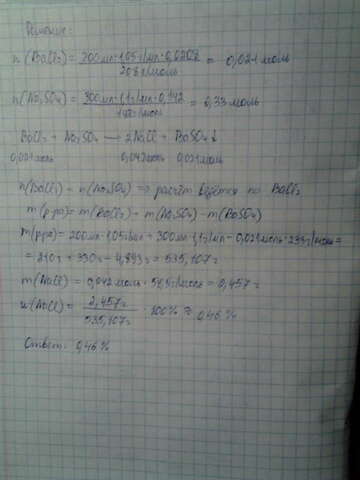 Решение:
n(BaCl₂) = 200мл·1,05г/мл·0,0208 / 208г/моль = 0,021 моль
n(Na₂SO₄) = 300мл·1,1г/мл·0,142 / 142г/моль = 0,33 моль
BaCl₂ + Na₂SO₄ → 2NaCl + BaSO₄↓
0,021моль 0,042моль 0,021моль
n(BaCl₂) < n(Na₂SO₄) ⇒ расчёт ведётся по BaCl₂
m(р-ра) = m(BaCl₂) + m(Na₂SO₄) - m(BaSO₄)
m(р-ра) = 200мл·1,05г/мл + 300мл·1,1г/мл - 0,021моль·233г/моль =
= 210г + 330г - 4,893г = 535,107г
m(NaCl) = 0,042моль·58,5г/моль = 2,457г
w(NaCl) = 2,457г / 535,107г · 100% ≈ 0,46%
Ответ: 0,46%